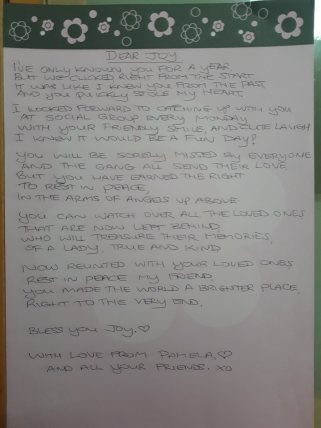 DEAR JOY
I'VE ONLY KNOWN YOU FOR A YEAR
BUT WE CLICKED RIGHT FROM THE START
IT WAS LIKE I KNEW YOU FROM THE PAST
AND YOU QUICKLY STOLE MY HEART
I LOOKED FORWARD TO CATCHING UP WITH YOU
AT SOCIAL GROUP EVERY MONDAY
WITH YOUR FRIENDLY SMILE, AND CUTE LAUGH
I KNEW IT WOULD BE A FUN DAY!
YOU WILL BE SORELY MISSED BY EVERYONE
AND THE GANG ALL SEND THEIR LOVE
BUT YOU HAVE EARNED THE RIGHT
TO REST IN PEACE,
IN THE ARMS OF ANGELS UP ABOVE
YOU CAN WATCH OVER ALL THE LOVED ONES
THAT ARE NOW LEFT BEHIND
WHO WILL TREASURE THEIR MEMORIES,
OF A LADY, TRUE AND KIND
NOW REUNITED WITH YOUR LOVED ONES
REST IN PEACE MY FRIEND,
YOU MADE THE WORLD A BRIGHTER PLACE
RIGHT TO THE VERY END.
BLESS YOU JOY.♡
WITH LOVE FROM PAMELA,♡
AND ALL YOUR FRIENDS. XO